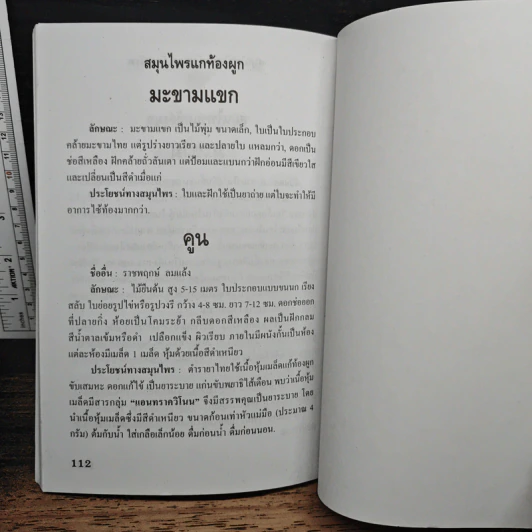 สมุนไพรแก้ท้องผูก
มะขามแขก
ลักษณะ : มะขามแขก เป็นไม้พุ่ม ขนาดเล็ก, ใบเป็นใบประกอบ
คล้ายมะขามไทย แต่รูปร่างยาวเรียว และปลายใบ แหลมกว่า, ดอกเป็น
ช่อสีเหลือง ฝักคล้ายถั่วลันเตา แต่ป้อมและแบนกว่าฝักอ่อนมีสีเขียวใส
และเปลี่ยนเป็นสีดำเมื่อแก่
ประโยชน์ทางสมุนไพร : ใบและฝักใช้เป็นยาถ่าย แต่ใบจะทำให้มี
อาการไซ้ท้องมากกว่า.
คูน
ชื่ออื่น : ราชพฤกษ์ ลมแล้ง
ลักษณะ : ไม้ยืนต้น สูง 5-15 เมตร ใบประกอบแบบขนนก เรียง
สลับ ใบย่อยรูปไข่หรือรูปวงรี กว้าง 4-8 ซม. ยาว 7-12 ซม. ดอกช่อออก
ที่ปลายกิ่ง ห้อยเป็นโคมระย้า กลีบดอกสีเหลือง ผลเป็นฝักกลม
สีน้ำตาลเข้มหรือดำ เปลือกแข็ง ผิวเรียบ ภายในมีผนังกั้นเป็นห้อง
แต่ละห้องมีเมล็ด 1 เมล็ด หุ้มด้วยเนื้อสีดำเหนียว
ประโยชน์ทางสมุนไพร : ตำรายาไทยใช้เนื้อหุ้มเมล็ดแก้ท้องผูก
ขับเสมหะ ดอกแก้ไข้ เป็นยาระบาย แก่นขับพยาธิไส้เดือน พบว่าเนื้อหุ้ม
เมล็ดมีสารกลุ่ม "แอนทราควิโนน" จึงมีสรรพคุณเป็นยาระบาย โดย
นำเนื้อหุ้มเมล็ดซึ่งมีสีดำเหนียว ขนาดก้อนเท่าหัวแม่มือ (ประมาณ 4
กรัม) ต้มกับน้ำ ใส่เกลือเล็กน้อย ดื่มก่อนน้ำ ดื่มก่อนนอน.
112